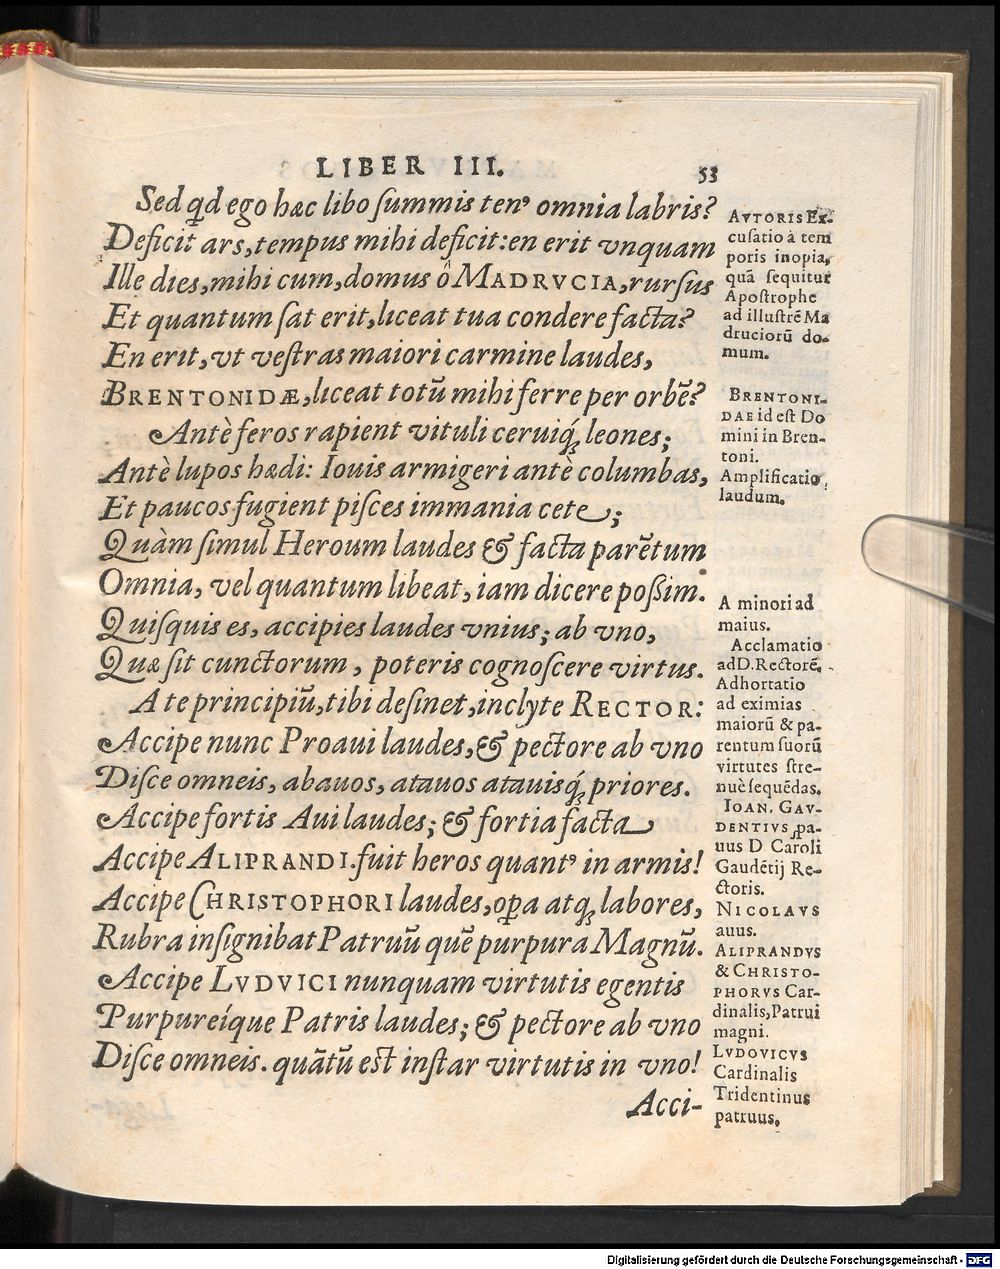 LIBER III. 53
Sed qd ego hæc libo summis tenꝰ omnia labris?
Deficit ars, tempus mihi deficit: en erit vnquam
Ille dies, mihi cum, domus ô MADRVCIA, rursus
Et quantum sat erit, liceat tua condere facta?
En erit, vt vestras maiori carmine laudes,
BRENTONIDÆ, liceat totũ mihi ferre per orbẽ?
Antè feros rapient vituli ceruiq́ꝫ leones;
Antè lupos hædi: Iouis armigeri antè columbas,
Et paucos fugient pisces immania cete;
Quàm simul Heroum laudes & facta parẽtum
Omnia, vel quantum libeat, iam dicere poßim.
Quisquis es, accipies laudes vnius; ab vno,
Quæ sit cunctorum, poteris cognoscere virtus.
A te principiũ, tibi desinet, inclyte RECTOR:
Accipe nunc Proaui laudes, & pectore ab vno
Disce omneis, abauos, atauos atauisq́ꝫ priores.
Accipe fortis Aui laudes; & fortia facta
Accipe ALIPRANDI. fuit heros quantꝰ in armis!
Accipe CHRISTOPHORI laudes, oꝑa atqꝫ labores,
Rubra insignibat Patruũ quẽ purpura Magnũ.
Accipe LVDVICI nunquam virtutis egentis
Purpureíque Patris laudes; & pectore ab vno
Disce omneis. quãtũ est instar virtutis in vno!
Acci-
AVTORIS Ex-
cusatio à tem
poris inopia,
quã sequitur
Apostrophe
ad illustrẽ Ma
druciorũ do-
mum.
BRENTONI-
DAE id est Do
mini in Bren-
toni.
Amplificatio
laudum.
A minori ad
maius.
Acclamatio
ad D. Rectorẽ.
Adhortatio
ad eximias
maiorũ & pa-
rentum suorũ
virtutes stre-
nuè sequẽdas.
IOAN. GAV-
DENTIVS ꝓa-
uus D Caroli
Gaudẽtij Re-
ctoris.
NICOLAVS
auus.
ALIPRANDVS
& CHRISTO-
PHORVS Car-
dinalis, Patrui
magni.
LVDOVICVS
Cardinalis
Tridentinus
patruus.
Digitalisierung gefördert durch die Deutsche Forschungsgemeinschaft - DFG